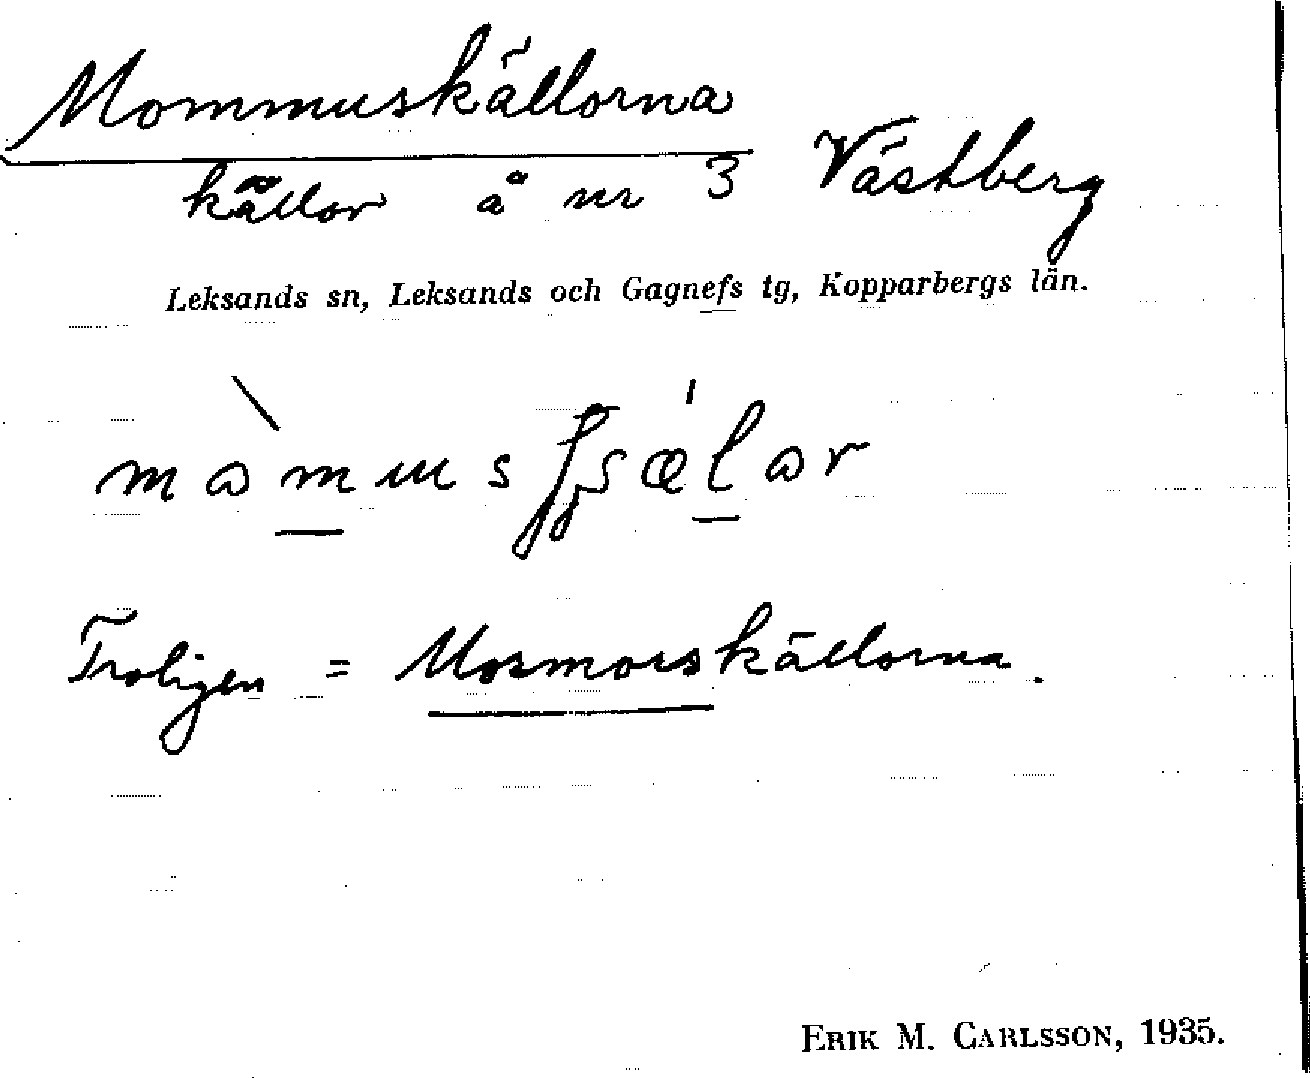 Mommuskällorna
källor å nr 3 Västberg
Leksands sn, Leksands och Gagnefs tg, Kopparbergs län.
Troligen = Mosmorskällorna.
ERIK M. CARLSSON, 1935.